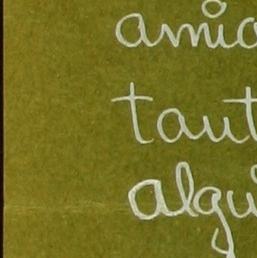 amio
taut
algu